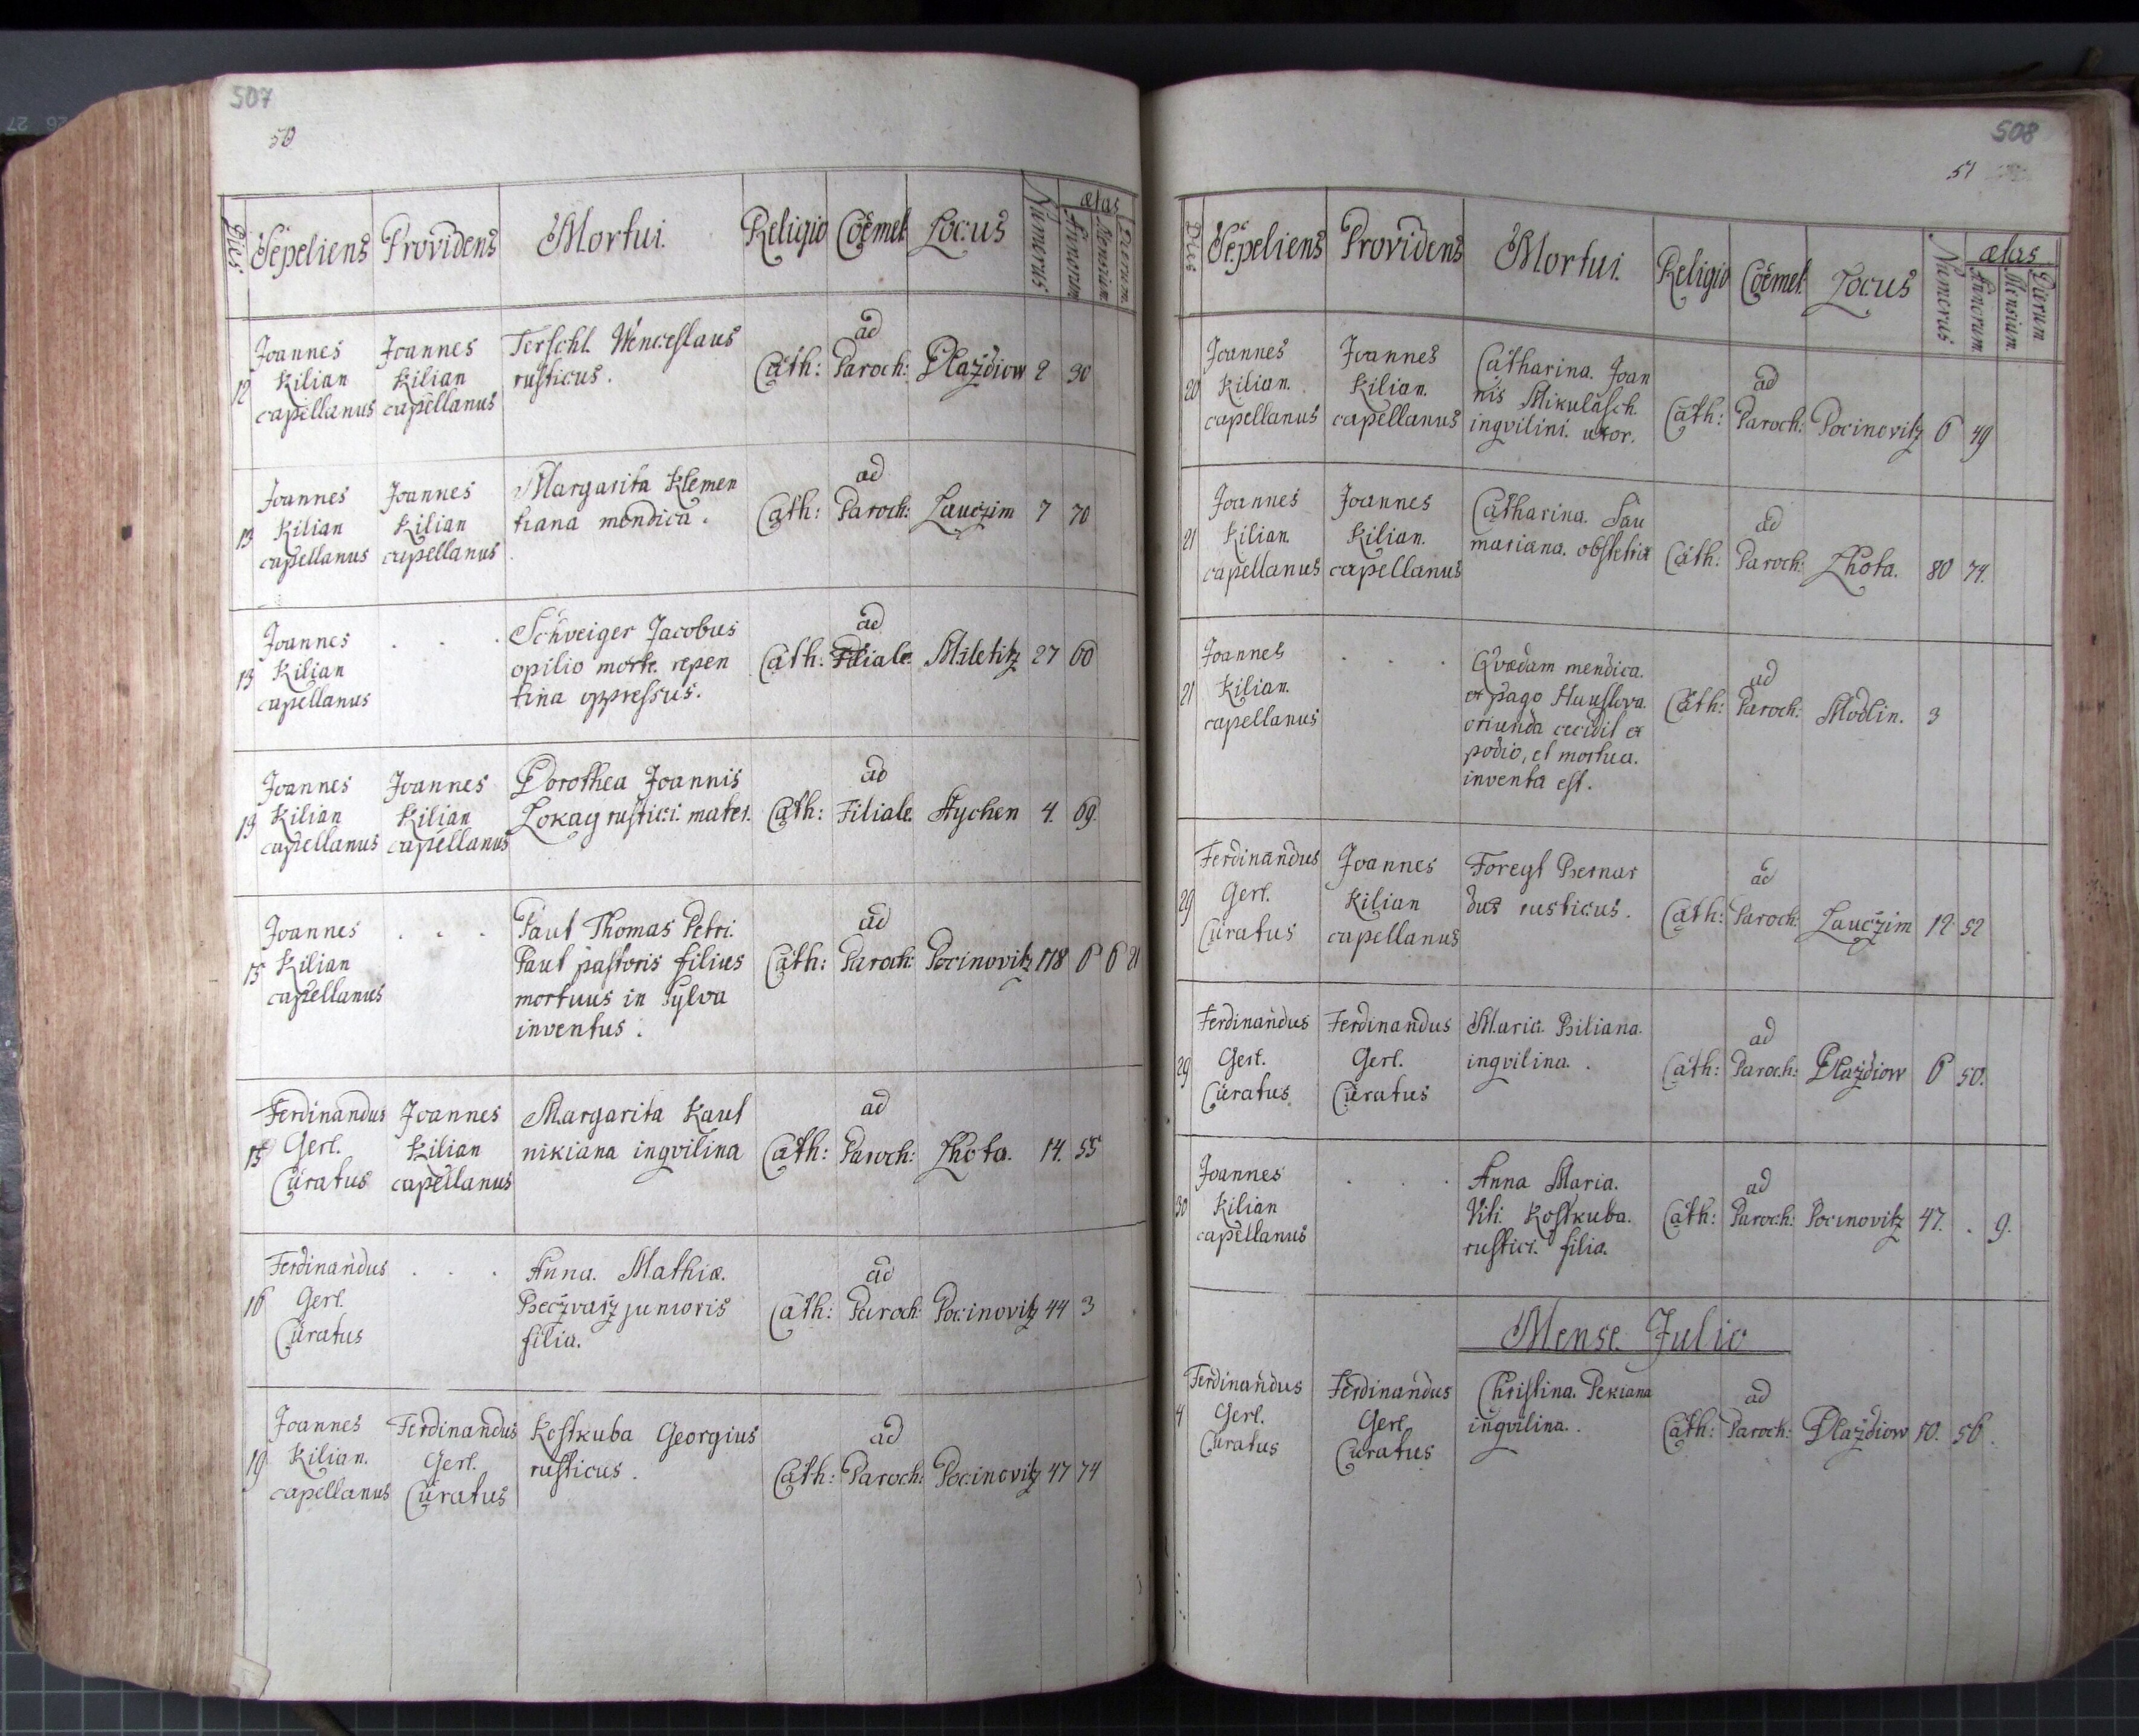 507
50
Dies Sepeliens Providens Mortui. Religio Coemet. Locus Numerus ætas Annorum Mensium Dierum
Joannes Joannes Terschl Wenceslaus ad
12 Kilian Kilian rusticus. Cath: Paroch: Plazdiow 2 30
capellanus capellanus
Joannes Joannes Margarita Klemen ad
13 Kilian Kilian tiana mendica. Cath: Paroch: Lauczim 7 70
capellanus capellanus
Joannes . . . Schveiger Jacobus ad
13 Kilian opilio morte repen Cath: Filiale Miletitz 27 60
capellanus tina oppressus.
Joannes Joannes Dorothea Joannis ad
19 Kilian Kilian Lokay rustici mater. Cath: Filiale Hychen 4. 69.
capellanus capellanus
Joannes . . . Paul Thomas Petri ad
15 Kilian Paul pastoris filius Cath: Paroch: Pocinovitz 118 6 6 21
capellanus mortuus in sylva
inventus.
Ferdinandus Joannes Margarita Kaut ad
15 Gerl. Kilian nikiana inqvilina Cath: Paroch: Lhota. 14. 55
Curatus capellanus
Ferdinandus . . . Anna Mathiæ ad
16 Gerl. Beczvarz junioris Cath: Paroch: Pocinovitz 44 3
Curatus filia.
Joannes Ferdinandus Kostkuba Georgius ad
19 Kilian. Gerl. rusticus. Cath: Paroch: Pocinovitz 47 74
capellanus Curatus
508
51
Dies Sepeliens Providens Mortui. Religio Coemet. Locus Numerus ætas Annorum Mensium Dierum
Joannes Joannes Catharina Joan ad
20 Kilian. Kilian. nis Mikulasch Cath: Paroch: Pocinovitz 6 49
capellanus capellanus inqvilini uxor.
Joannes Joannes Catharina Sau ad
21 Kilian. Kilian. mariana obstetrix Cath: Paroch: Lhota. 80 74.
capellanus capellanus
Joannes . . . Qvædam mendica ad
21 Kilian. ex pago Hauslova Cath: Paroch: Modlin. 3
capellanus oriunda cecidit ex
podio, et mortua
inventa est.
Ferdinandus Joannes Foregt Bernar ad
29 Gerl. Kilian dus rusticus. Cath: Paroch: Lauczim 12 52
Curatus capellanus
Ferdinandus Ferdinandus Maria Biliana ad
29 Gerl. Gerl. inqvilina. Cath: Paroch: Plazdiow 6 50.
Curatus Curatus
Joannes . . . Anna Maria ad
30 Kilian Viti Kostkuba Cath: Paroch: Pocinovitz 47. . 9.
capellanus rustici filia.
Mense Julio
Ferdinandus Ferdinandus Christina Pekiana ad
4 Gerl. Gerl. inqvilina. Cath: Paroch: Plazdiow 10. 56.
Curatus Curatus